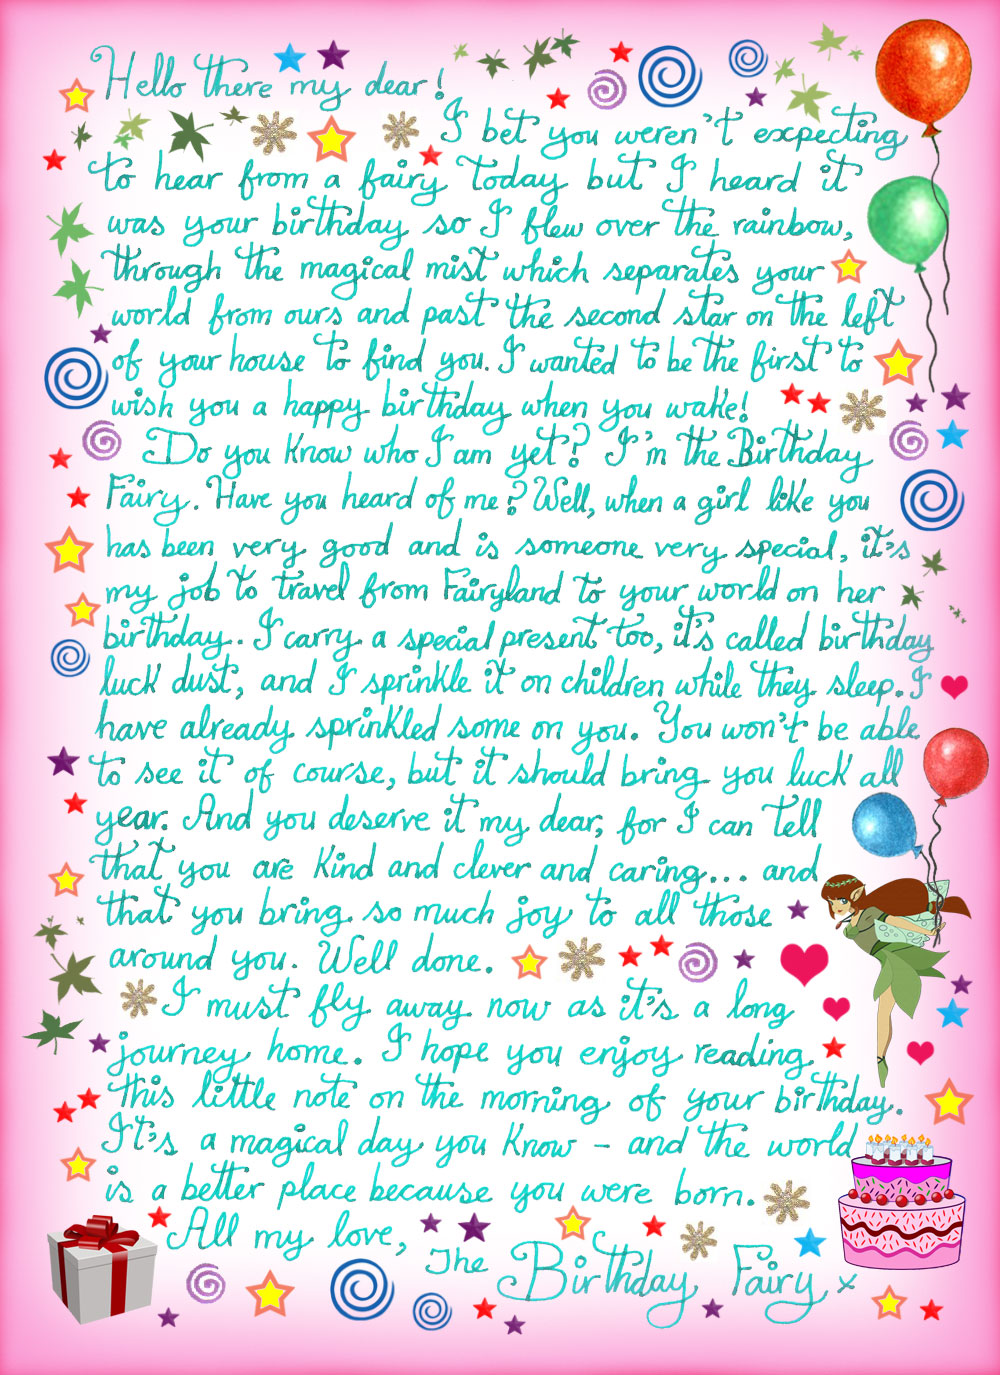 Hello there my dear!
I bet you weren't expecting
to hear from a fairy today but I heard it
was your birthday so I flew over the rainbow,
through the magical mist which separates your
world from ours and past the second star on the left
of your house to find you. I wanted to be the first to
wish you a happy birthday when you wake!
Do you know who I am yet? I'm the Birthday
Fairy. Have you heard of me? Well, when a girl like you
has been very good and is someone very special, it's
my job to travel from Fairyland to your world on her
birthday. I carry a special present too, it's called birthday
luck dust, and I sprinkle it on children while they sleep. I
have already sprinkled some on you. You won't be able
to see it of course, but it should bring you luck all
year. And you deserve it my dear, for I can tell
that you are kind and clever and caring... and
that you bring so much joy to all those
around you. Well done.
I must fly away now as it's a long
journey home. I hope you enjoy reading
this little note on the morning of your birthday.
It's a magical day you know - and the world
is a better place because you were born.
All my love,
The Birthday Fairy x